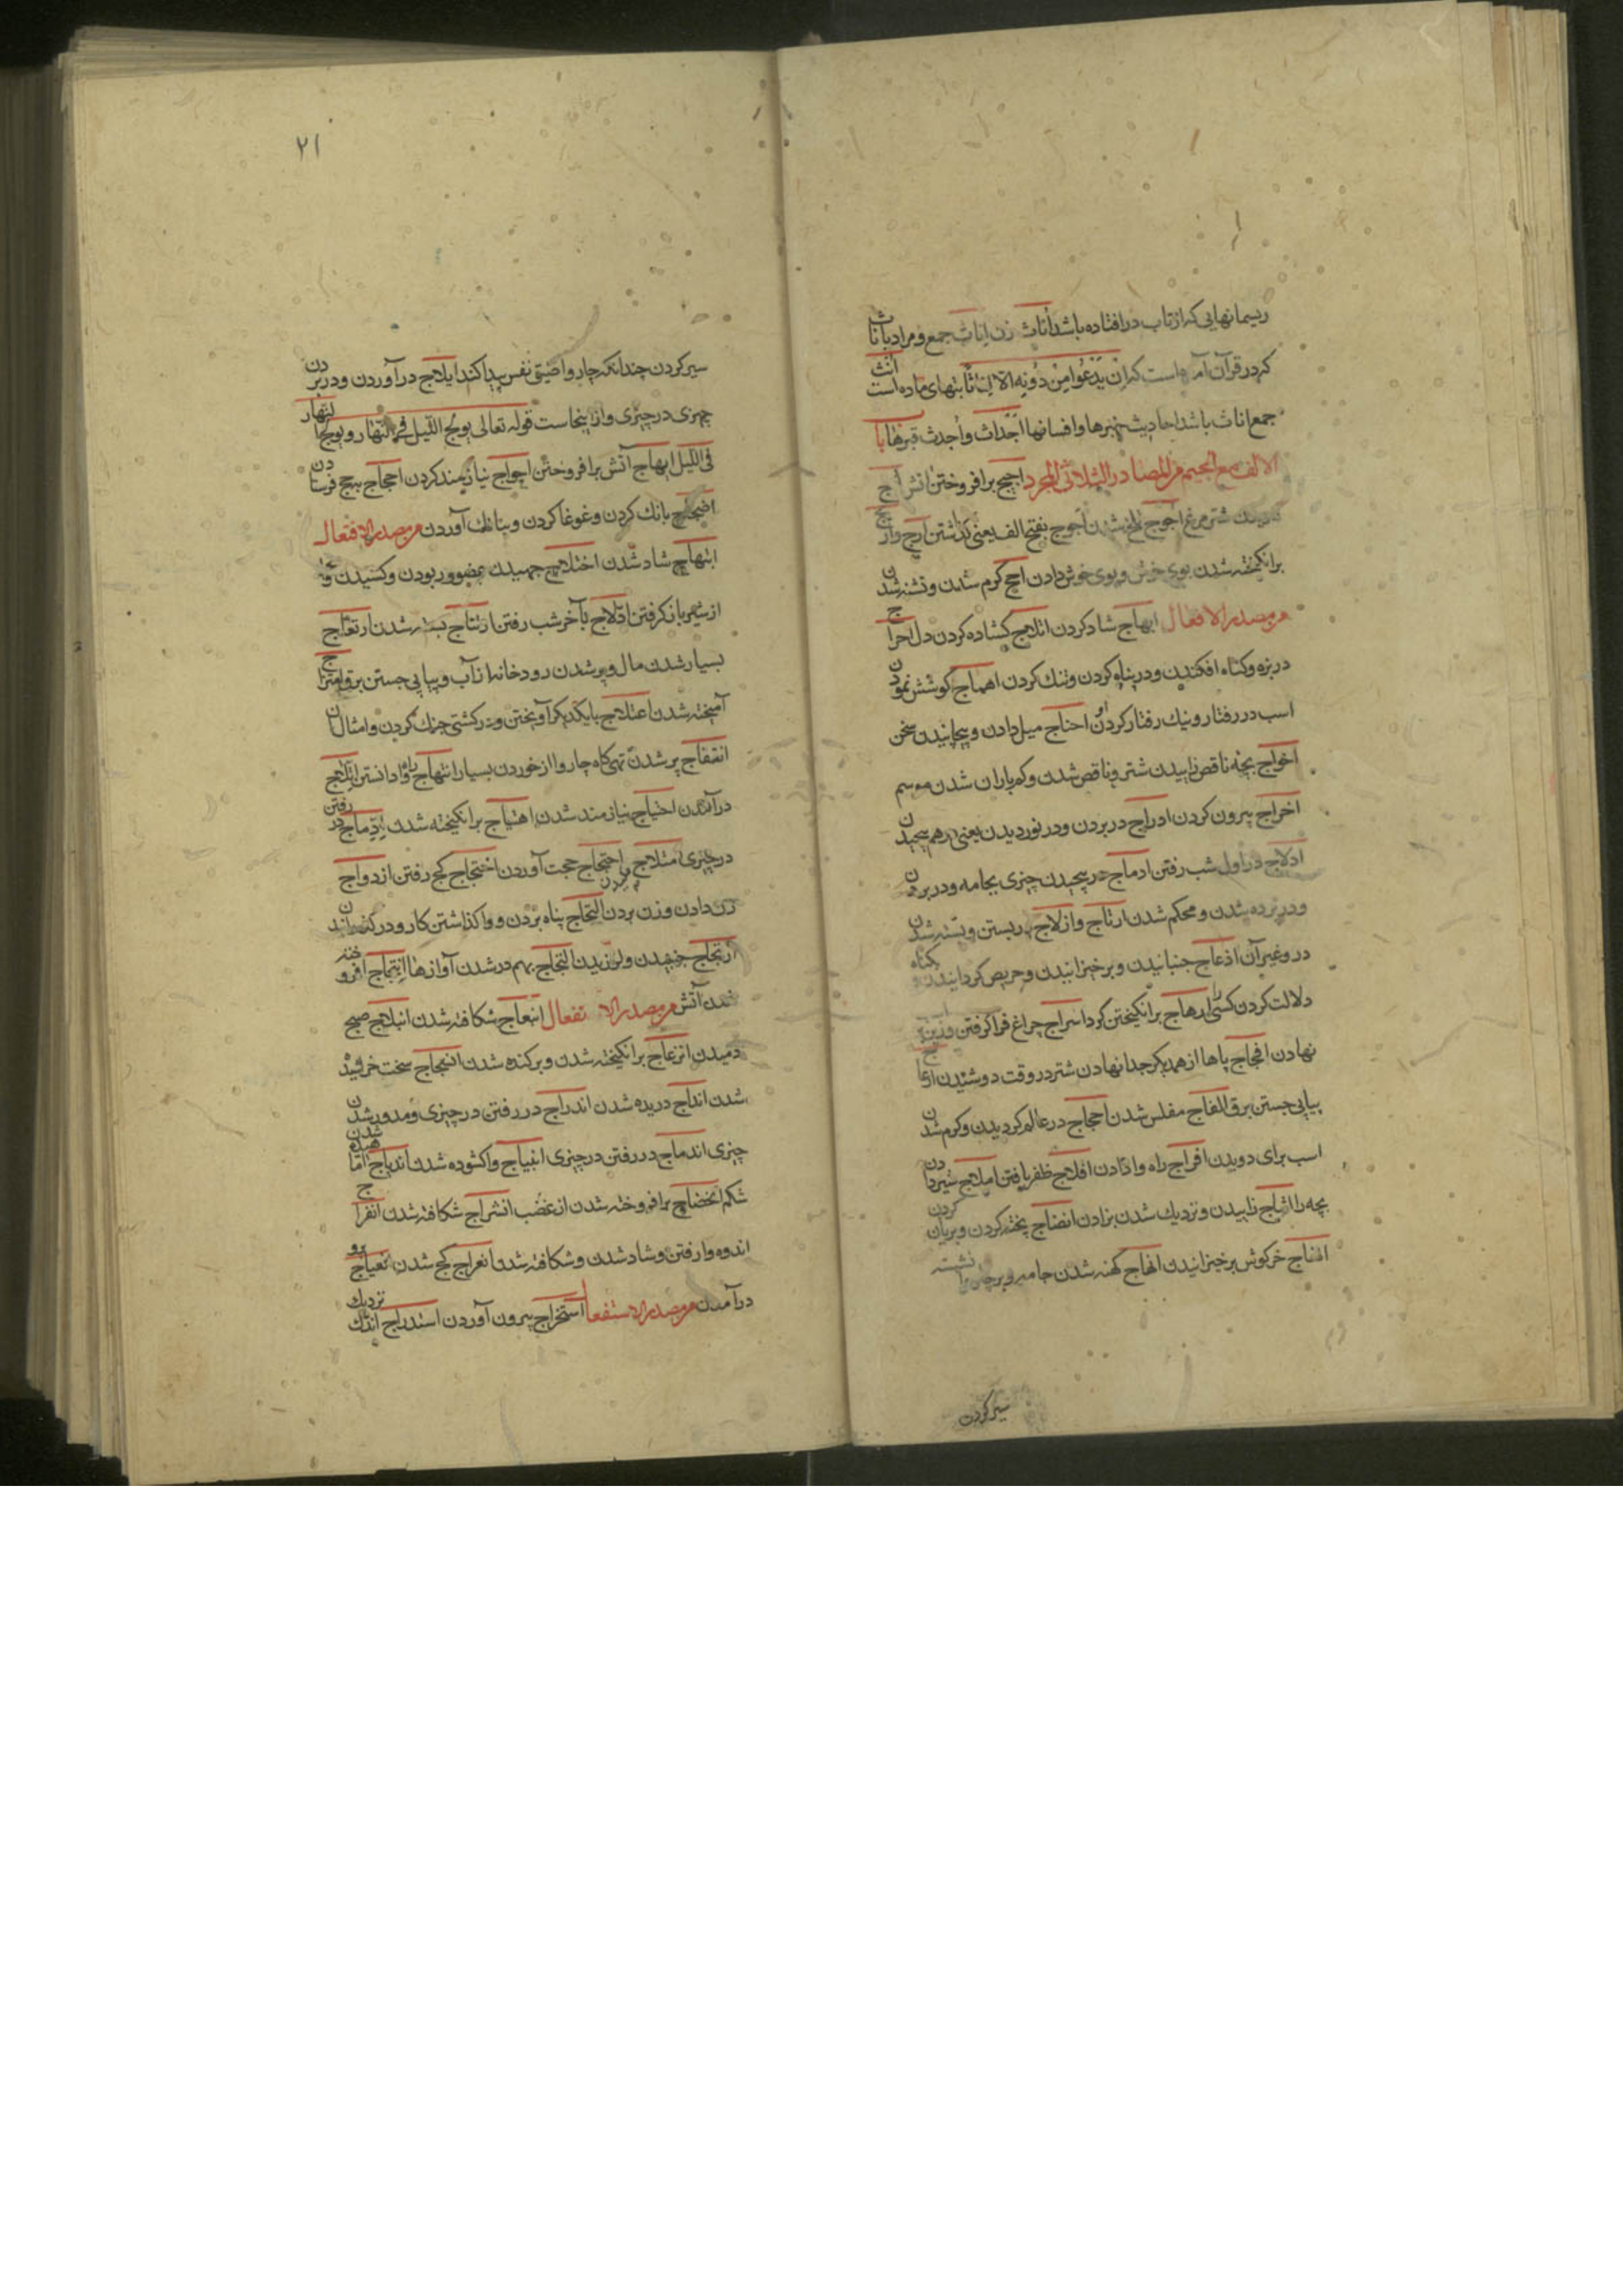 ریسمانهایی که از تاب در افتاده باشد أناث زن اناث جمع و مراد باناث
که در قرآن آمده است که ان یدعوا من دونه الا اناثا بتهای ماده است انث
جمع اناث باشد احادیث خبرها و افسانها اجداث و أجدث قبرها باب
الالف مع الجیم من المصادر الثلاثی المجرد اجیج برافروختن آتش اج
شتر مرغ اجوج تلخ شدن اجوج بفتح الف یعنی گذاشتن ارج و اریج
برانگیخته شدن بوی خوش و بوی خوش دادن اجج گرم شدن و تشنه شدن
من مصدر الافعال ابهاج شاد کردن اثلاج گشاده کردن دل احراج
در بزه و گناه افکندن و در پناه کردن و تنگ کردن اهماج کوشش نمودن
اسب در رفتار و نیک رفتار کردن او احناج میل دادن و پیچانیدن سخن
اخداج بچه ناقص زاییدن شتر و ناقص شدن و کم باران شدن موسم
اخراج بیرون کردن ادراج در بردن و در نوردیدن یعنی در هم پیچیدن
ادلاج در اول شب رفتن ادماج در پیچیدن چیزی بجامه و در بردن
و در پرده شدن و محکم شدن ارتاج و ازلاج در بستن و بسته شدن
در و غیر آن ازعاج جنبانیدن و برخیزانیدن و حریص گردانیدن و
دلالت کردن کسی را ارهاج برانگیختن گرد اسراج چراغ فرا گرفتن و زین
نهادن افجاج پاها از همدیگر جدا نهادن شتر در وقت دوشیدن
پیاپی جستن برق الفاج مفلس شدن احجاج در عالم گردیدن و گرم شدن
اسب برای دویدن افراج راه وا دادن افلاج ظفر یافتن املاج شیر دادن
بچه را انتاج زاییدن و نزدیک شدن بزادن انضاج پخته کردن و بریان کردن
انفاج خرگوش برخیزانیدن انهاج کهنه شدن جامه و بر چاروا نشسته
سیر کردن
۲۱
سیر کردن چندانکه چاروا ضیق نفس پیدا کند ایلاج درآوردن و در بردن
چیزی در چیزی و از اینجاست قوله تعالی یولج اللیل فی النهار و یولج النهار
فی اللیل ایهاج آتش برافروختن احواج نیازمند کردن احجاج بحج فرستادن
اضجاج بانگ کردن و غوغا کردن و ببانگ آوردن من مصدر الافتعال
ابتهاج شاد شدن اختلاج جهیدن عضو و ربودن و کشیدن و
از شیر باز گرفتن ادلاج بآخر شب رفتن ارتتاج بسته شدن ارتعاج
بسیار شدن مال و پر شدن رودخانه از آب و پیاپی جستن برق امتزاج
آمیخته شدن اعتلاج با یکدیگر آویختن و در کشتی جنگ کردن و امثال آن
انتفاج پر شدن تهی گاه چاروا از خوردن بسیار انتهاج راه وا دانستن ایتلاج
درآمدن احتیاج نیازمند شدن اهتیاج برانگیخته شدن ادماج در رفتن
در چیزی امتلاج مکیدن احتجاج حجت آوردن اختجاج کج رفتن ازدواج
زن دادن و زن بردن التحاج پناه بردن و وا گذاشتن کار و در
ارتجاج جنبیدن و لرزیدن التجاج بهم در شدن آوازها ائتجاج افروخته
شدن آتش من مصدر الانفعال انبعاج شکافته شدن انبلاج صبح
دمیدن انزعاج برانگیخته شدن و برکنده شدن انسحاج سخت خراشیده
شدن انداج دریده شدن اندراج در رفتن در چیزی و مدور شدن
چیزی اندماج در رفتن در چیزی انبیاج وا گشوده شدن
شکم انحضاج برافروخته شدن از غضب انشراج شکافته شدن انفراج
اندوه وا رفتن و شاد شدن و شکافته شدن انعراج کج شدن انعیاج
درآمدن من مصدر الاستفعال استخراج بیرون آوردن استدراج اندک نزدیک